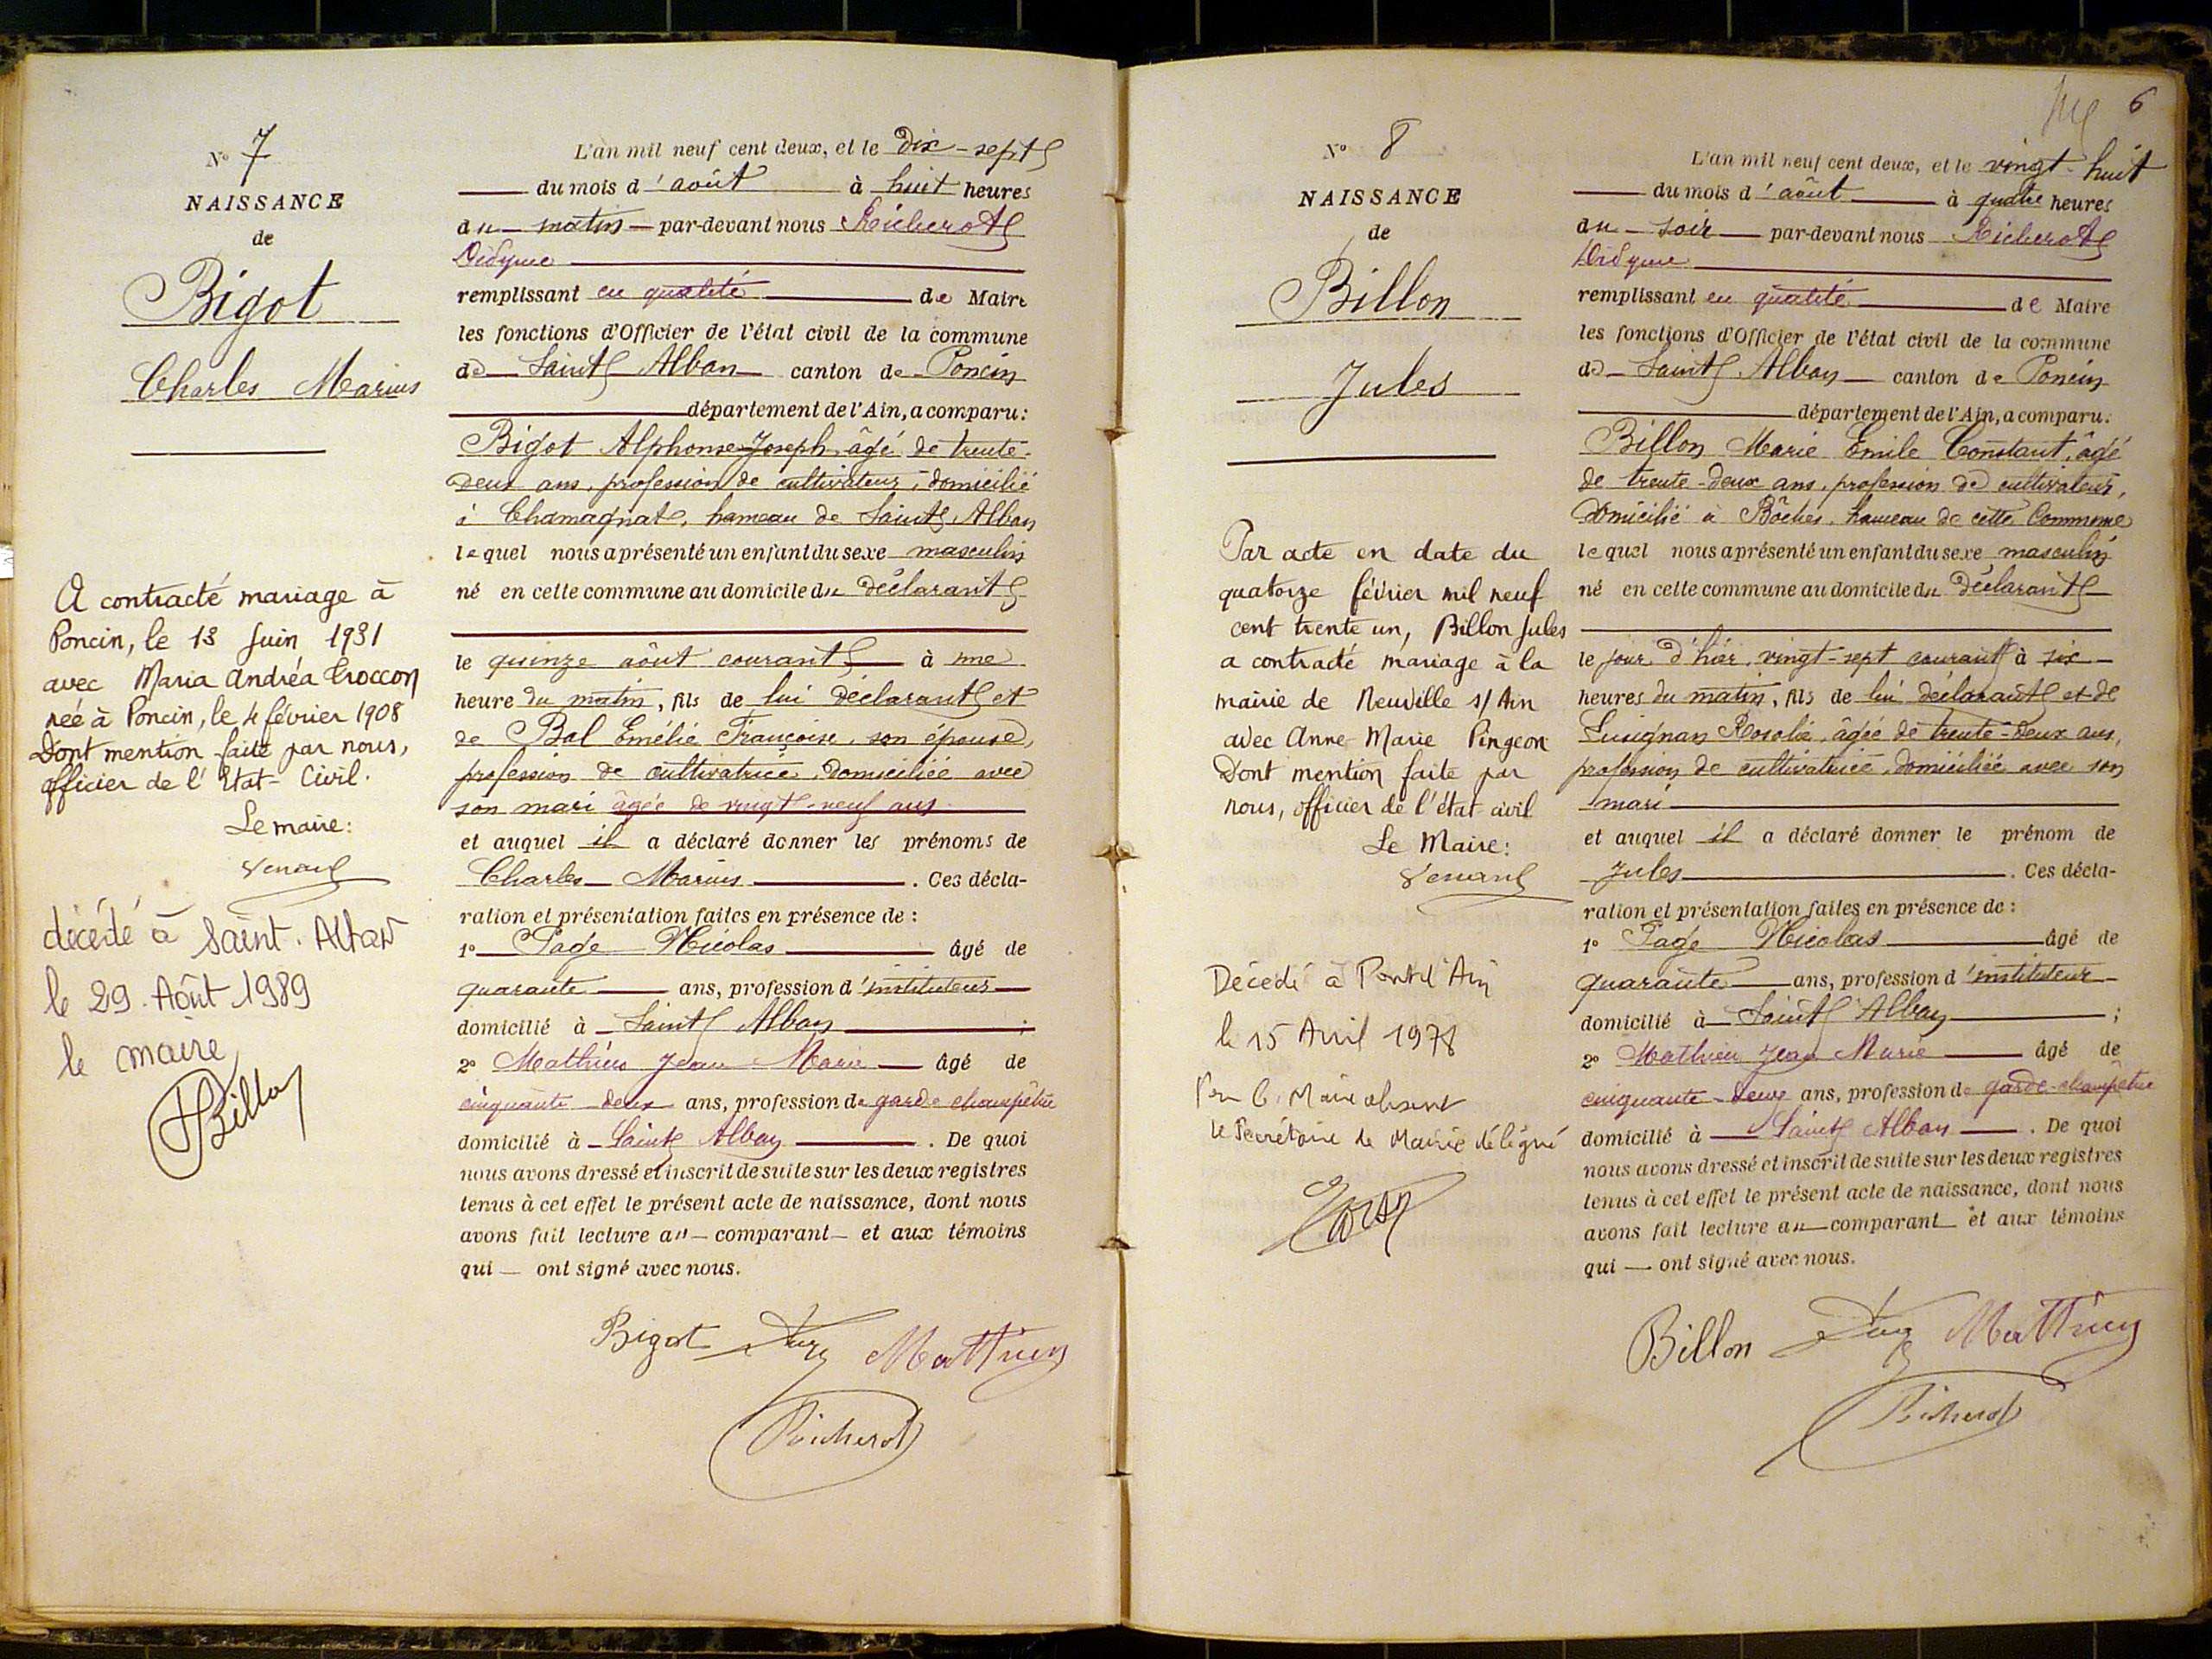 N° 7
NAISSANCE
de
Bigot
Charles Marius
A contracté mariage à
Poncin, le 13 Juin 1931
avec Maria Andréa Croccon
née à Poncin, le 4 février 1908
Dont mention faite par nous,
officier de l'Etat-Civil.
Le maire:
décédé à Saint. Alban
le 29. Août 1989
le maire
Billon
L'an mil neuf cent deux, et le dix-sept
du mois d'août à huit heures
du matin par-devant nous Richerot
Didyme
remplissant en qualité de Maire
les fonctions d'Officier de l'état civil de la commune
de Saint Alban canton de Poncin
département de l'Ain, a comparu:
Bigot Alphonse Joseph, âgé de trente-
deux ans, profession de cultivateur, domicilié
à Chamagnat, hameau de Saint Alban
lequel nous a présenté un enfant du sexe masculin
né en cette commune au domicile du déclarant
le quinze août courant à une
heure du matin, fils de lui déclarant et
de Bal Emélie Françoise, son épouse,
profession de cultivatrice domiciliée avec
son mari âgée de vingt-neuf ans
et auquel il a déclaré donner les prénoms de
Charles Marius. Ces décla-
ration et présentation faites en présence de :
1° Page Nicolas âgé de
quarante ans, profession d'instituteur
domicilié à Saint Alban ;
2° Mathieu Jean Marie âgé de
cinquante-deux ans, profession de garde champêtre
domicilié à Saint Alban. De quoi
nous avons dressé et inscrit de suite sur les deux registres
tenus à cet effet le présent acte de naissance, dont nous
avons fait lecture au comparant et aux témoins
qui ont signé avec nous.
Bigot Mathieu
Richerot
6
N° 8
NAISSANCE
de
Billon
Jules
Par acte en date du
quatorze février mil neuf
cent trente un, Billon Jules
a contracté mariage à la
mairie de Neuville s/ Ain
avec Anne-Marie Pingeon
Dont mention faite par
nous, officier de l'état-civil
Le Maire:
Décédé à Pont d'Ain
le 15 Avril 1978
Pour le Maire absent
le Secrétaire de Mairie délégué
L'an mil neuf cent deux, et le vingt-huit
du mois d'août à quatre heures
du soir par-devant nous Richerot
Didyme
remplissant en qualité de Maire
les fonctions d'Officier de l'état civil de la commune
de Saint Alban canton de Poncin
département de l'Ain, a comparu:
Billon Marie Emile Constant, âgé
de trente-deux ans, profession de cultivateur,
domicilié à Bôches, hameau de cette Commune
lequel nous a présenté un enfant du sexe masculin
né en cette commune au domicile du déclarant
le jour d'hier, vingt-sept courant à six
heures du matin, fils de lui déclarant et de
Lusignan Rosalie, âgée de trente-deux ans,
profession de cultivatrice, domiciliée avec son
mari
et auquel il a déclaré donner le prénom de
Jules. Ces décla-
ration et présentation faites en présence de :
1° Page Nicolas âgé de
quarante ans, profession d'instituteur
domicilié à Saint Alban ;
2° Mathieu Jean Marie âgé de
cinquante-deux ans, profession de garde-champêtre
domicilié à Saint Alban. De quoi
nous avons dressé et inscrit de suite sur les deux registres
tenus à cet effet le présent acte de naissance, dont nous
avons fait lecture au comparant et aux témoins
qui ont signé avec nous.
Billon Mathieu
Richerot